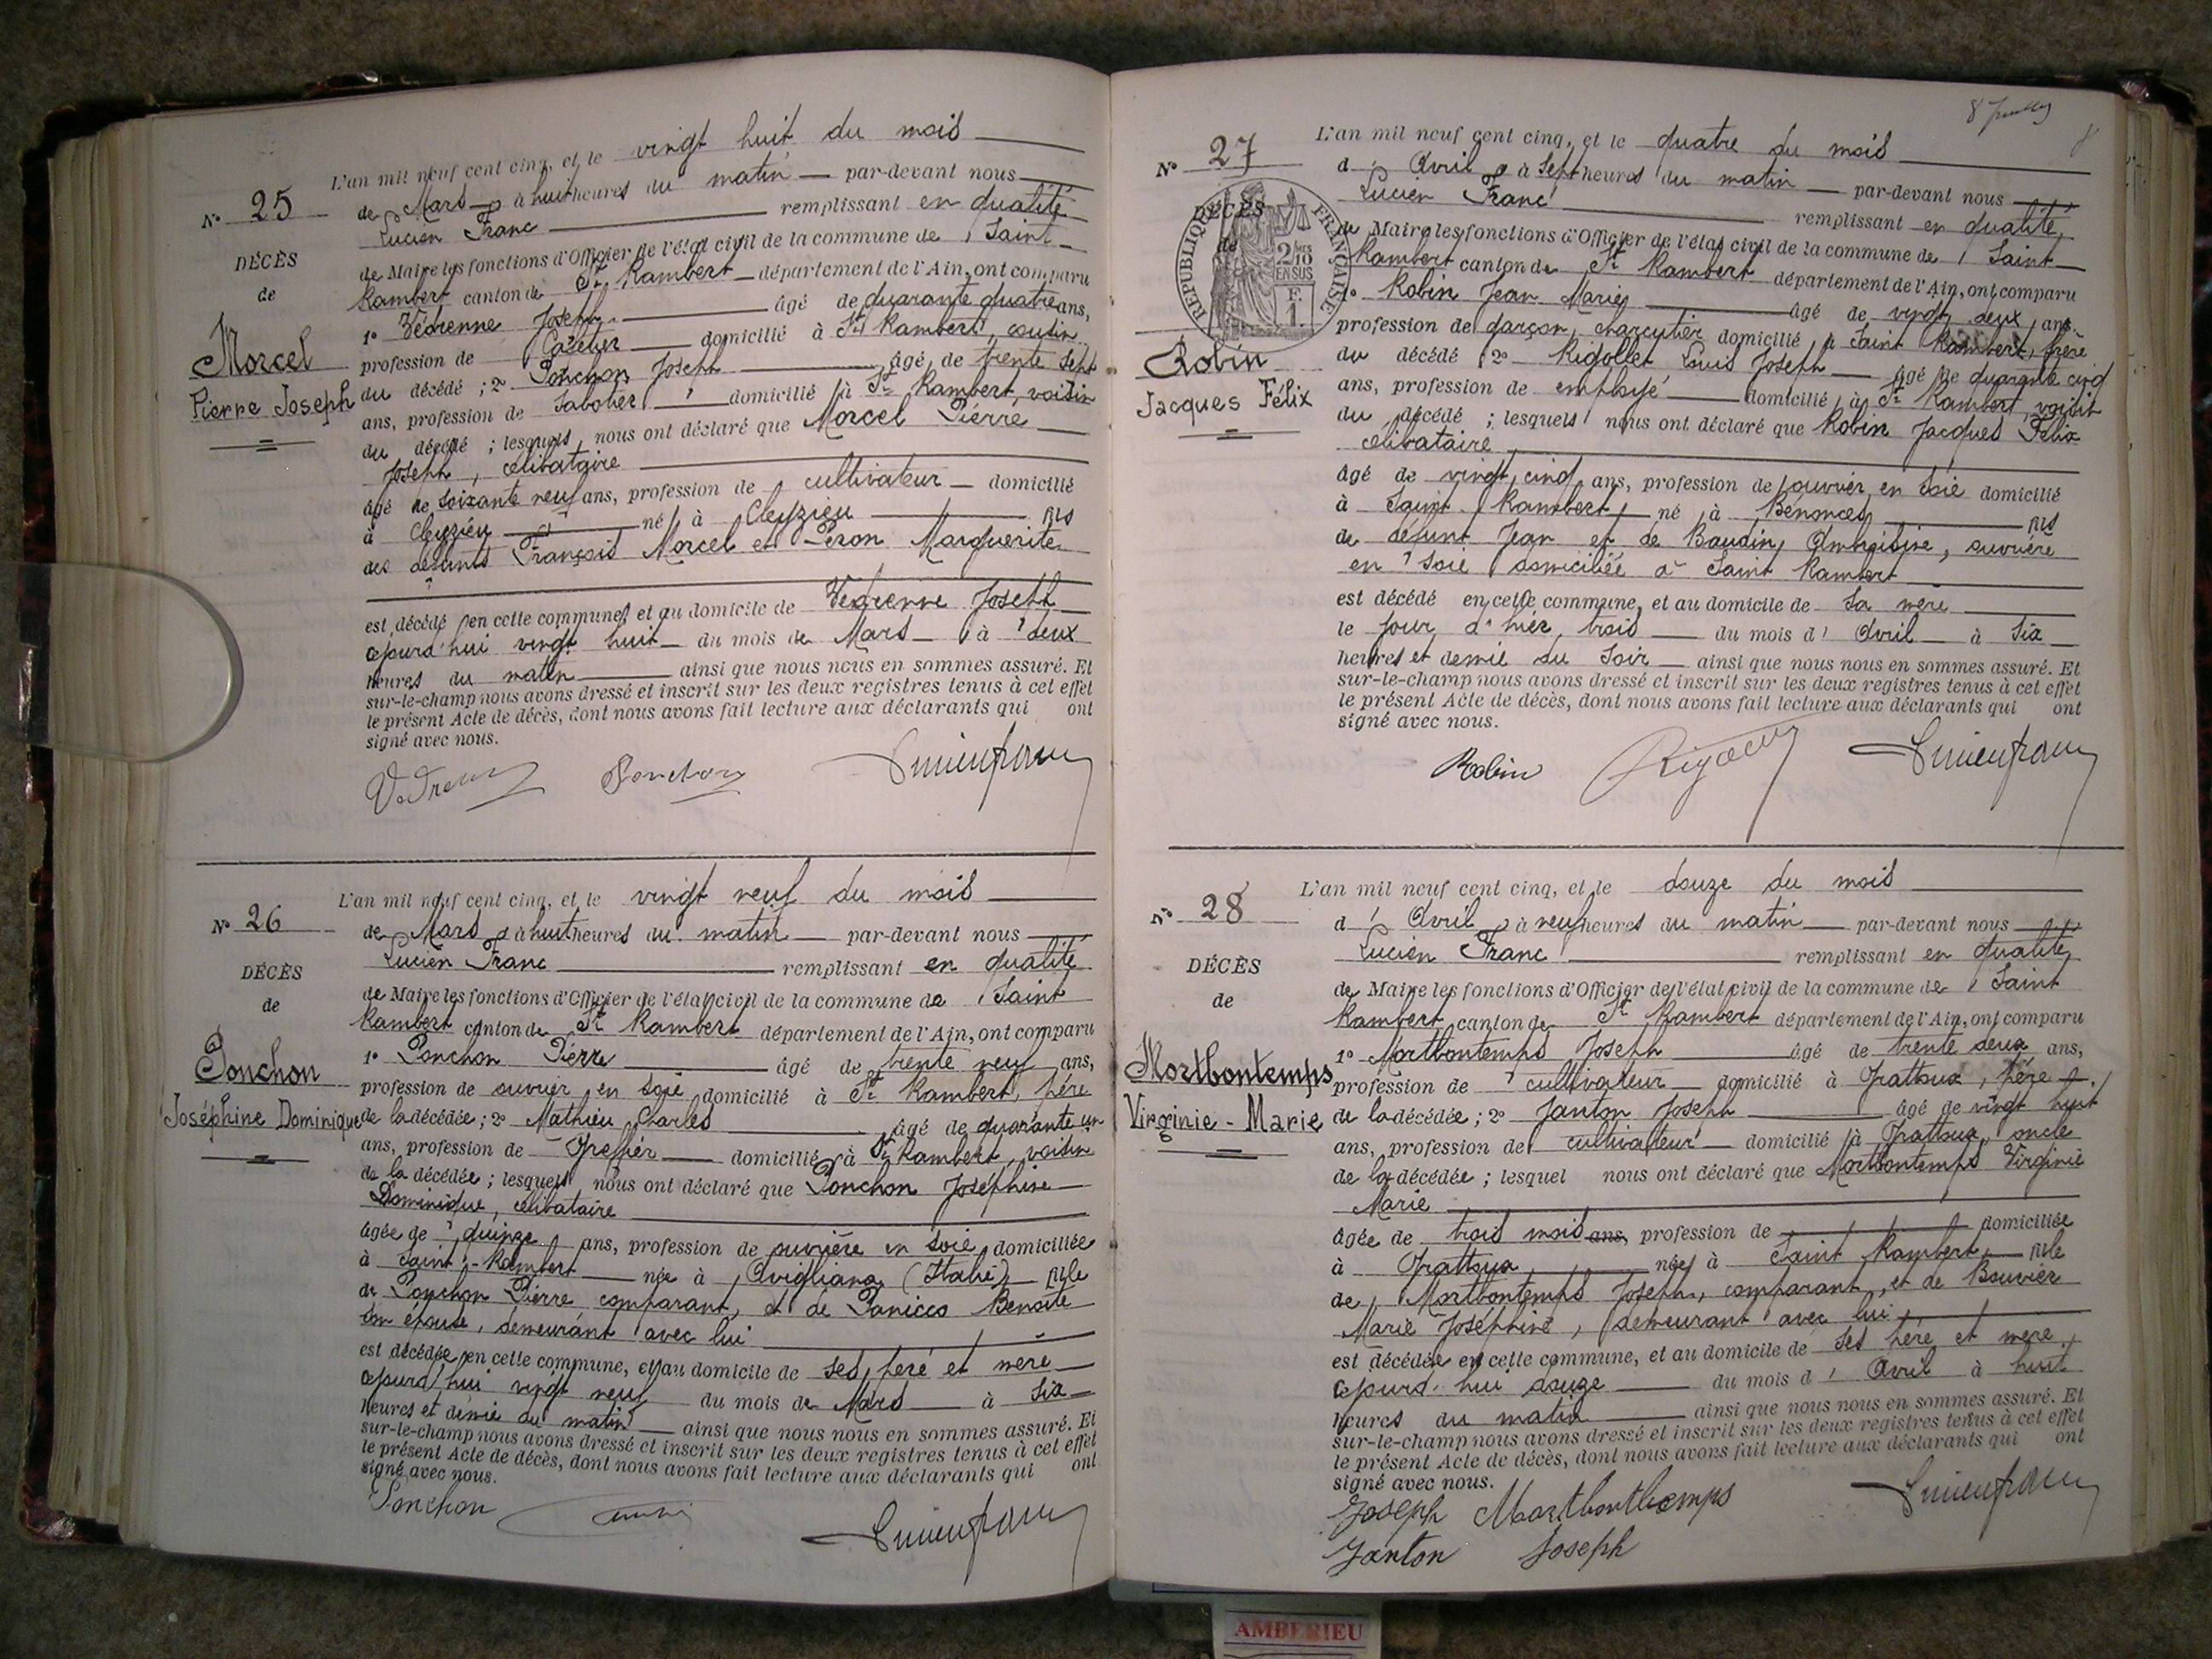 L'an mil neuf cent cinq, et le vingt huit du mois
N° 25
de Mars à huit heures du matin par-devant nous
Lucien Franc remplissant en qualité
DÉCÈS
de Maire les fonctions d'Officier de l'état civil de la commune de Saint
de
Rambert canton de St Rambert département de l'Ain, ont comparu
1° Védrenne Joseph âgé de quarante quatre ans,
Morcel
profession de domicilié à St Rambert, cousin
Pierre Joseph
du décédé ; 2° Ponchon Joseph âgé de trente sept
ans, profession de Sabotier domicilié à St Rambert, voisin
du décédé ; lesquels nous ont déclaré que Morcel Pierre
Joseph, célibataire
âgé de soixante neuf ans, profession de cultivateur domicilié
à Cleyzieu né à Cleyzieu fils
des défunts François Morcel et Peron Marguerite
est décédé en cette commune, et au domicile de Védrenne Joseph
aujourd'hui vingt huit du mois de Mars à deux
heures du matin ainsi que nous nous en sommes assuré. Et
sur-le-champ nous avons dressé et inscrit sur les deux registres tenus à cet effet
le présent Acte de décès, dont nous avons fait lecture aux déclarants qui ont
signé avec nous.
Ponchon
L'an mil neuf cent cinq, et le vingt neuf du mois
N° 26
de Mars à huit heures du matin par-devant nous
Lucien Franc remplissant en qualité
DÉCÈS
de Maire les fonctions d'Officier de l'état civil de la commune de Saint
de
Rambert canton de St Rambert département de l'Ain, ont comparu
1° Ponchon Pierre âgé de trente neuf ans,
Ponchon
profession de ouvrier en soie domicilié à St Rambert, père
Joséphine Dominique
de la décédée ; 2° Mathieu Charles âgé de quarante un
ans, profession de Greffier domicilié à St Rambert, voisin
de la décédée ; lesquels nous ont déclaré que Ponchon Joséphine
Dominique, célibataire
âgée de quinze ans, profession de ouvrière en soie domiciliée
à Saint-Rambert née à Avigliana (Italie) fille
de Ponchon Pierre comparant, et de Panicco Benoite
son épouse, demeurant avec lui
est décédée en cette commune, et au domicile de ses père et mère
aujourd'hui vingt neuf du mois de Mars à six
heures et demie du matin ainsi que nous nous en sommes assuré. Et
sur-le-champ nous avons dressé et inscrit sur les deux registres tenus à cet effet
le présent Acte de décès, dont nous avons fait lecture aux déclarants qui ont
signé avec nous.
Ponchon
8
L'an mil neuf cent cinq, et le quatre du mois
N° 27
d' Avril à sept heures du matin par-devant nous
Lucien Franc remplissant en qualité
DÉCÈS
de
RÉPUBLIQUE FRANÇAISE
2/10 EN SUS
F. 1.
de Maire les fonctions d'Officier de l'état civil de la commune de Saint
Rambert canton de St Rambert département de l'Ain, ont comparu
1° Robin Jean Marie âgé de vingt deux ans,
profession de garçon charcutier domicilié à Saint Rambert, frère
Robin
du décédé 2° Rigollet Louis Joseph âgé de quarante cinq
Jacques Félix
ans, profession de employé domicilié à St Rambert, voisin
du décédé ; lesquels nous ont déclaré que Robin Jacques Félix
célibataire
âgé de vingt cinq ans, profession de ouvrier en soie domicilié
à Saint Rambert né à Bénonces fils
de défunt Jean et de Baudin Ambroisine, ouvrière
en soie domiciliée à Saint Rambert
est décédé en cette commune, et au domicile de sa mère
le jour d'hier trois du mois d' Avril à six
heures et demie du soir ainsi que nous nous en sommes assuré. Et
sur-le-champ nous avons dressé et inscrit sur les deux registres tenus à cet effet
le présent Acte de décès, dont nous avons fait lecture aux déclarants qui ont
signé avec nous.
Robin
L'an mil neuf cent cinq, et le douze du mois
N° 28
d' Avril à neuf heures du matin par-devant nous
Lucien Franc remplissant en qualité
DÉCÈS
de Maire les fonctions d'Officier de l'état civil de la commune de Saint
de
Rambert canton de St Rambert département de l'Ain, ont comparu
1° Mortbontemps Joseph âgé de trente deux ans,
Mortbontemps
profession de cultivateur domicilié à Grattoux, père
Virginie - Marie
de la décédée ; 2° Janton Joseph âgé de vingt huit
ans, profession de cultivateur domicilié à Grattoux, oncle
de la décédée ; lesquel nous ont déclaré que Mortbontemps Virginie
Marie
âgée de trois mois ans, profession de domiciliée
à Grattoux née à Saint Rambert fille
de Mortbontemps Joseph, comparant, et de Bouvier
Marie Joséphine, demeurant avec lui
est décédée en cette commune, et au domicile de ses père et mère,
aujourd'hui douze du mois d' Avril à huit
heures du matin ainsi que nous nous en sommes assuré. Et
sur-le-champ nous avons dressé et inscrit sur les deux registres tenus à cet effet
le présent Acte de décès, dont nous avons fait lecture aux déclarants qui ont
signé avec nous.
Joseph Mortbonthemps
Janton Joseph
AMBERIEU